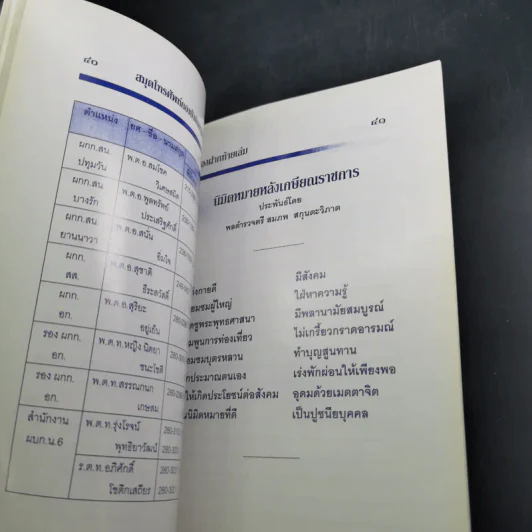 ๔๐
สมุดโทรศัพท์
ตำแหน่ง ยศ-ชื่อ-นามสกุล
ผกก.สน พ.ต.อ.สมโชค
ปทุมวัน วิเศษ
ผกก.สน พ.ต.อ.พูลทรัพย์
บางรัก ประเสริฐศักดิ์
ผกก.สน พ.ต.อ.สนั่น
ยานนาวา
ผกก. พ.ต.อ.สุชาติ
สส. ธีระสวัสดิ์
ผกก. พ.ต.อ.สุริยะ
อก. อยู่เย็น
รอง ผกก. พ.ต.ท.หญิง นิตยา
อก. ชนะโชติ
รอง ผกก. พ.ต.ท.สรรณกนก
อก. เกษสม
สำนักงาน พ.ต.ท.รุ่งโรจน์
ผบก.น.6 พุทธิยาวัฒน์
ร.ต.ท.อภิศักดิ์
โชติกเสถียร
๔๑
ฝากท้ายเล่ม
นิมิตหมายหลังเกษียณราชการ
ประพันธ์โดย
พลตำรวจตรี สมภพ สกุนตะวิภาต
กายดี มีสังคม
ชมผู้ใหญ่ ใฝ่หาความรู้
พระพุทธศาสนา มีพลานามัยสมบูรณ์
พูนการท่องเที่ยว ไม่เกรี้ยวกราดอารมณ์
ชมบุตรหลาน ทำบุญสุนทาน
ประมาณตนเอง เร่งพักผ่อนให้เพียงพอ
ให้เกิดประโยชน์ต่อสังคม อุดมด้วยเมตตาจิต
นิมิตหมายที่ดี เป็นปูชนียบุคคล